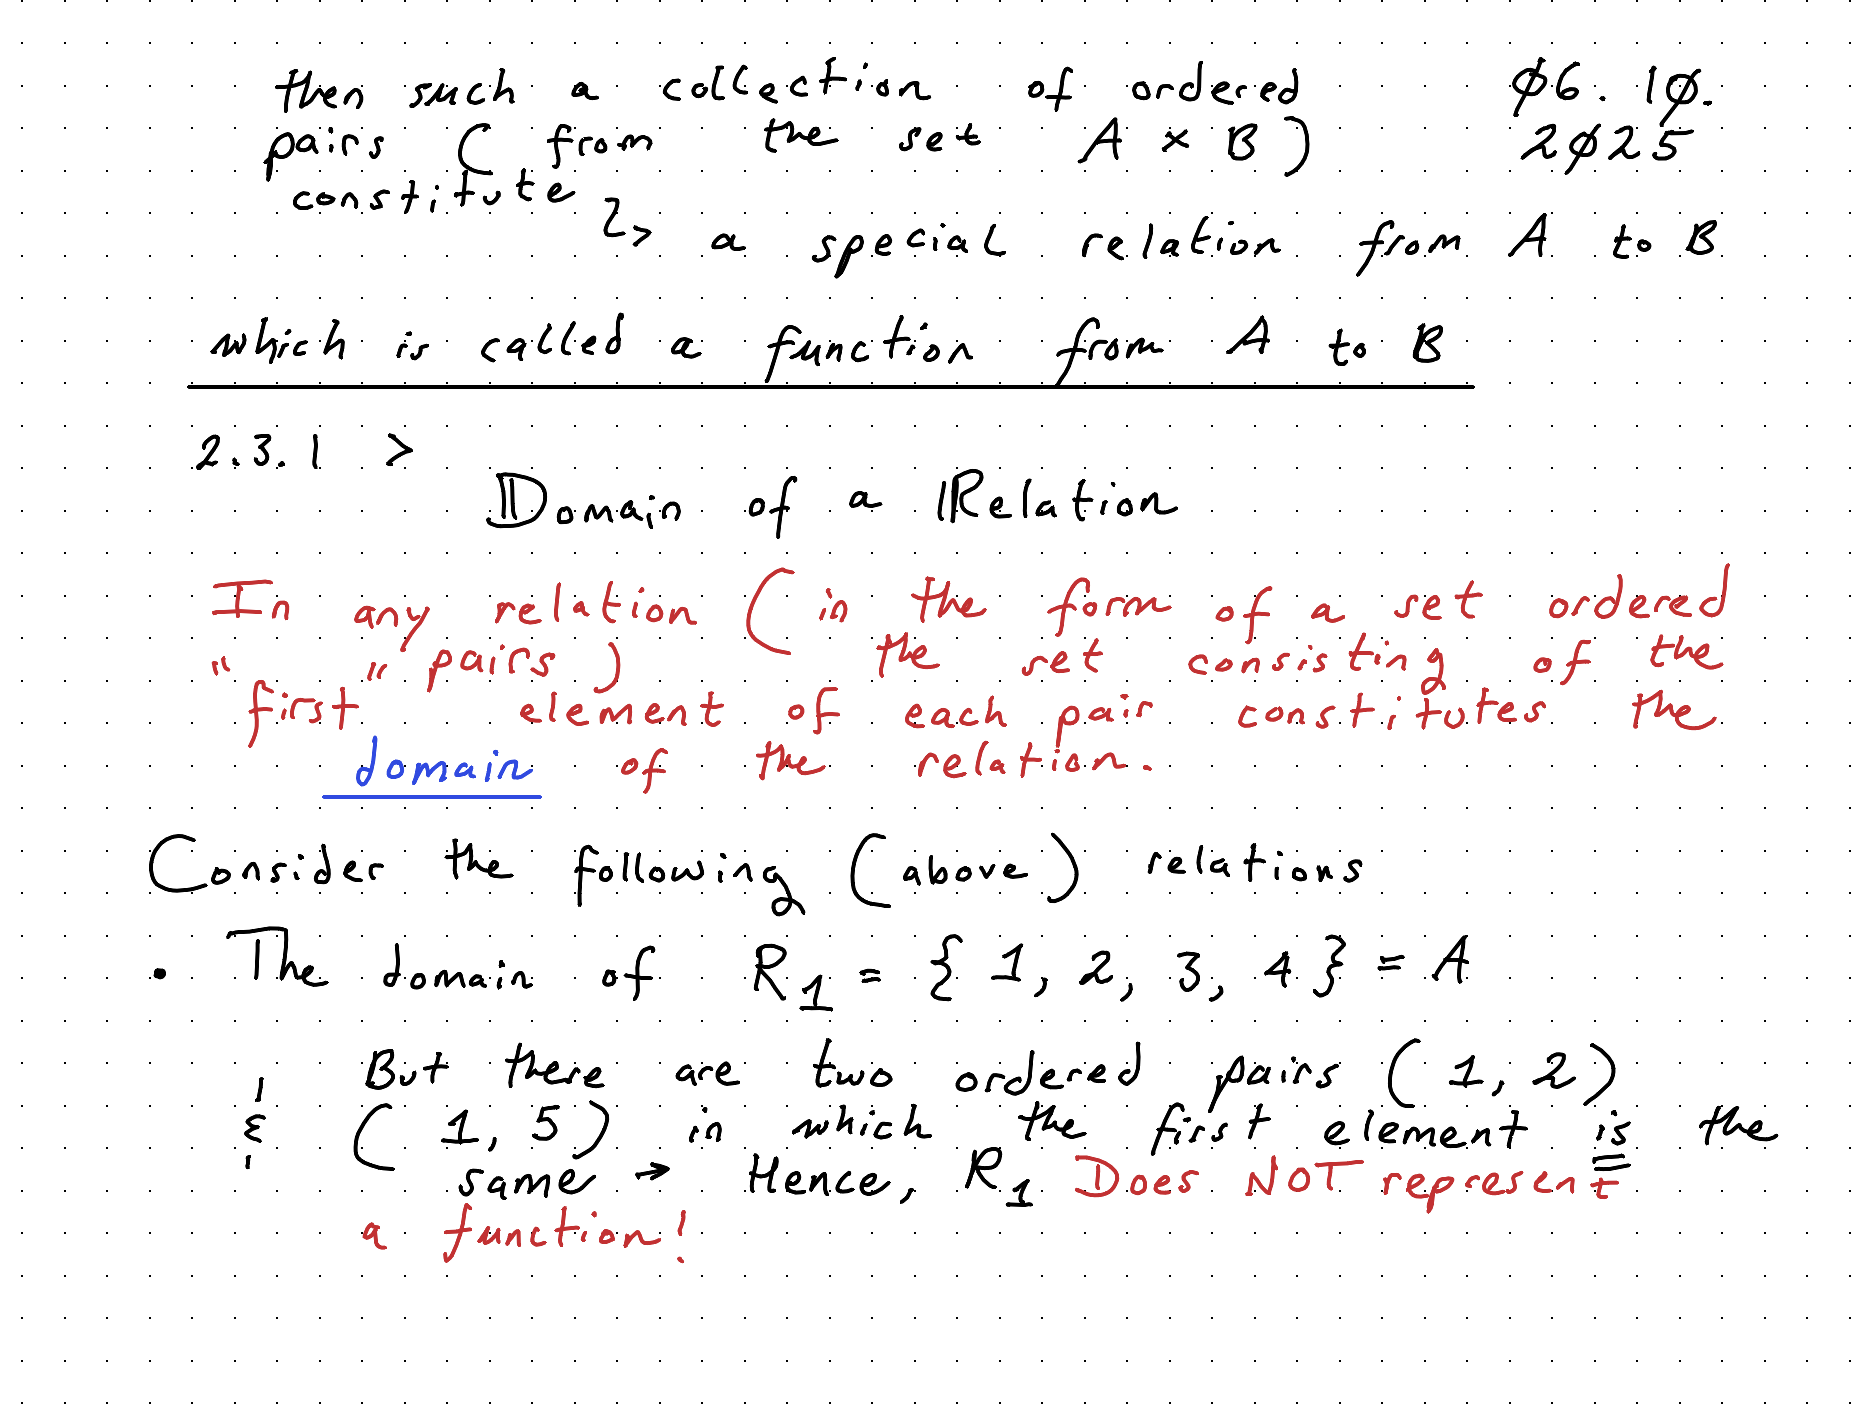 then such a collection of ordered
pairs ( from the set A × B )
constitute
↳ a special relation from A to B
which is called a function from A to B
Ø6.1Ø.
2Ø25
2.3.1 >
Domain of a Relation
In any relation ( in the form of a set ordered
pairs ) the set consisting of the
"first" element of each pair constitutes the
domain of the relation.
Consider the following ( above ) relations
• The domain of R₁ = { 1, 2, 3, 4 } = A
But there are two ordered pairs ( 1, 2 )
& ( 1, 5 ) in which the first element is the
same → Hence, R₁ Does NOT represent
a function!